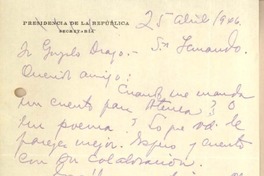 PRESIDENCIA DE LA REPÚBLICA
SECRETARÍA
25 Abril/946.
Sr Gonzalo Drago.- Sn Fernando.
Querido amigo:
Cuando me manda
un cuento para Atenea? O
un poema? Lo que Ud. de
parezca mejor. Espero y cuento
con su colaboración.